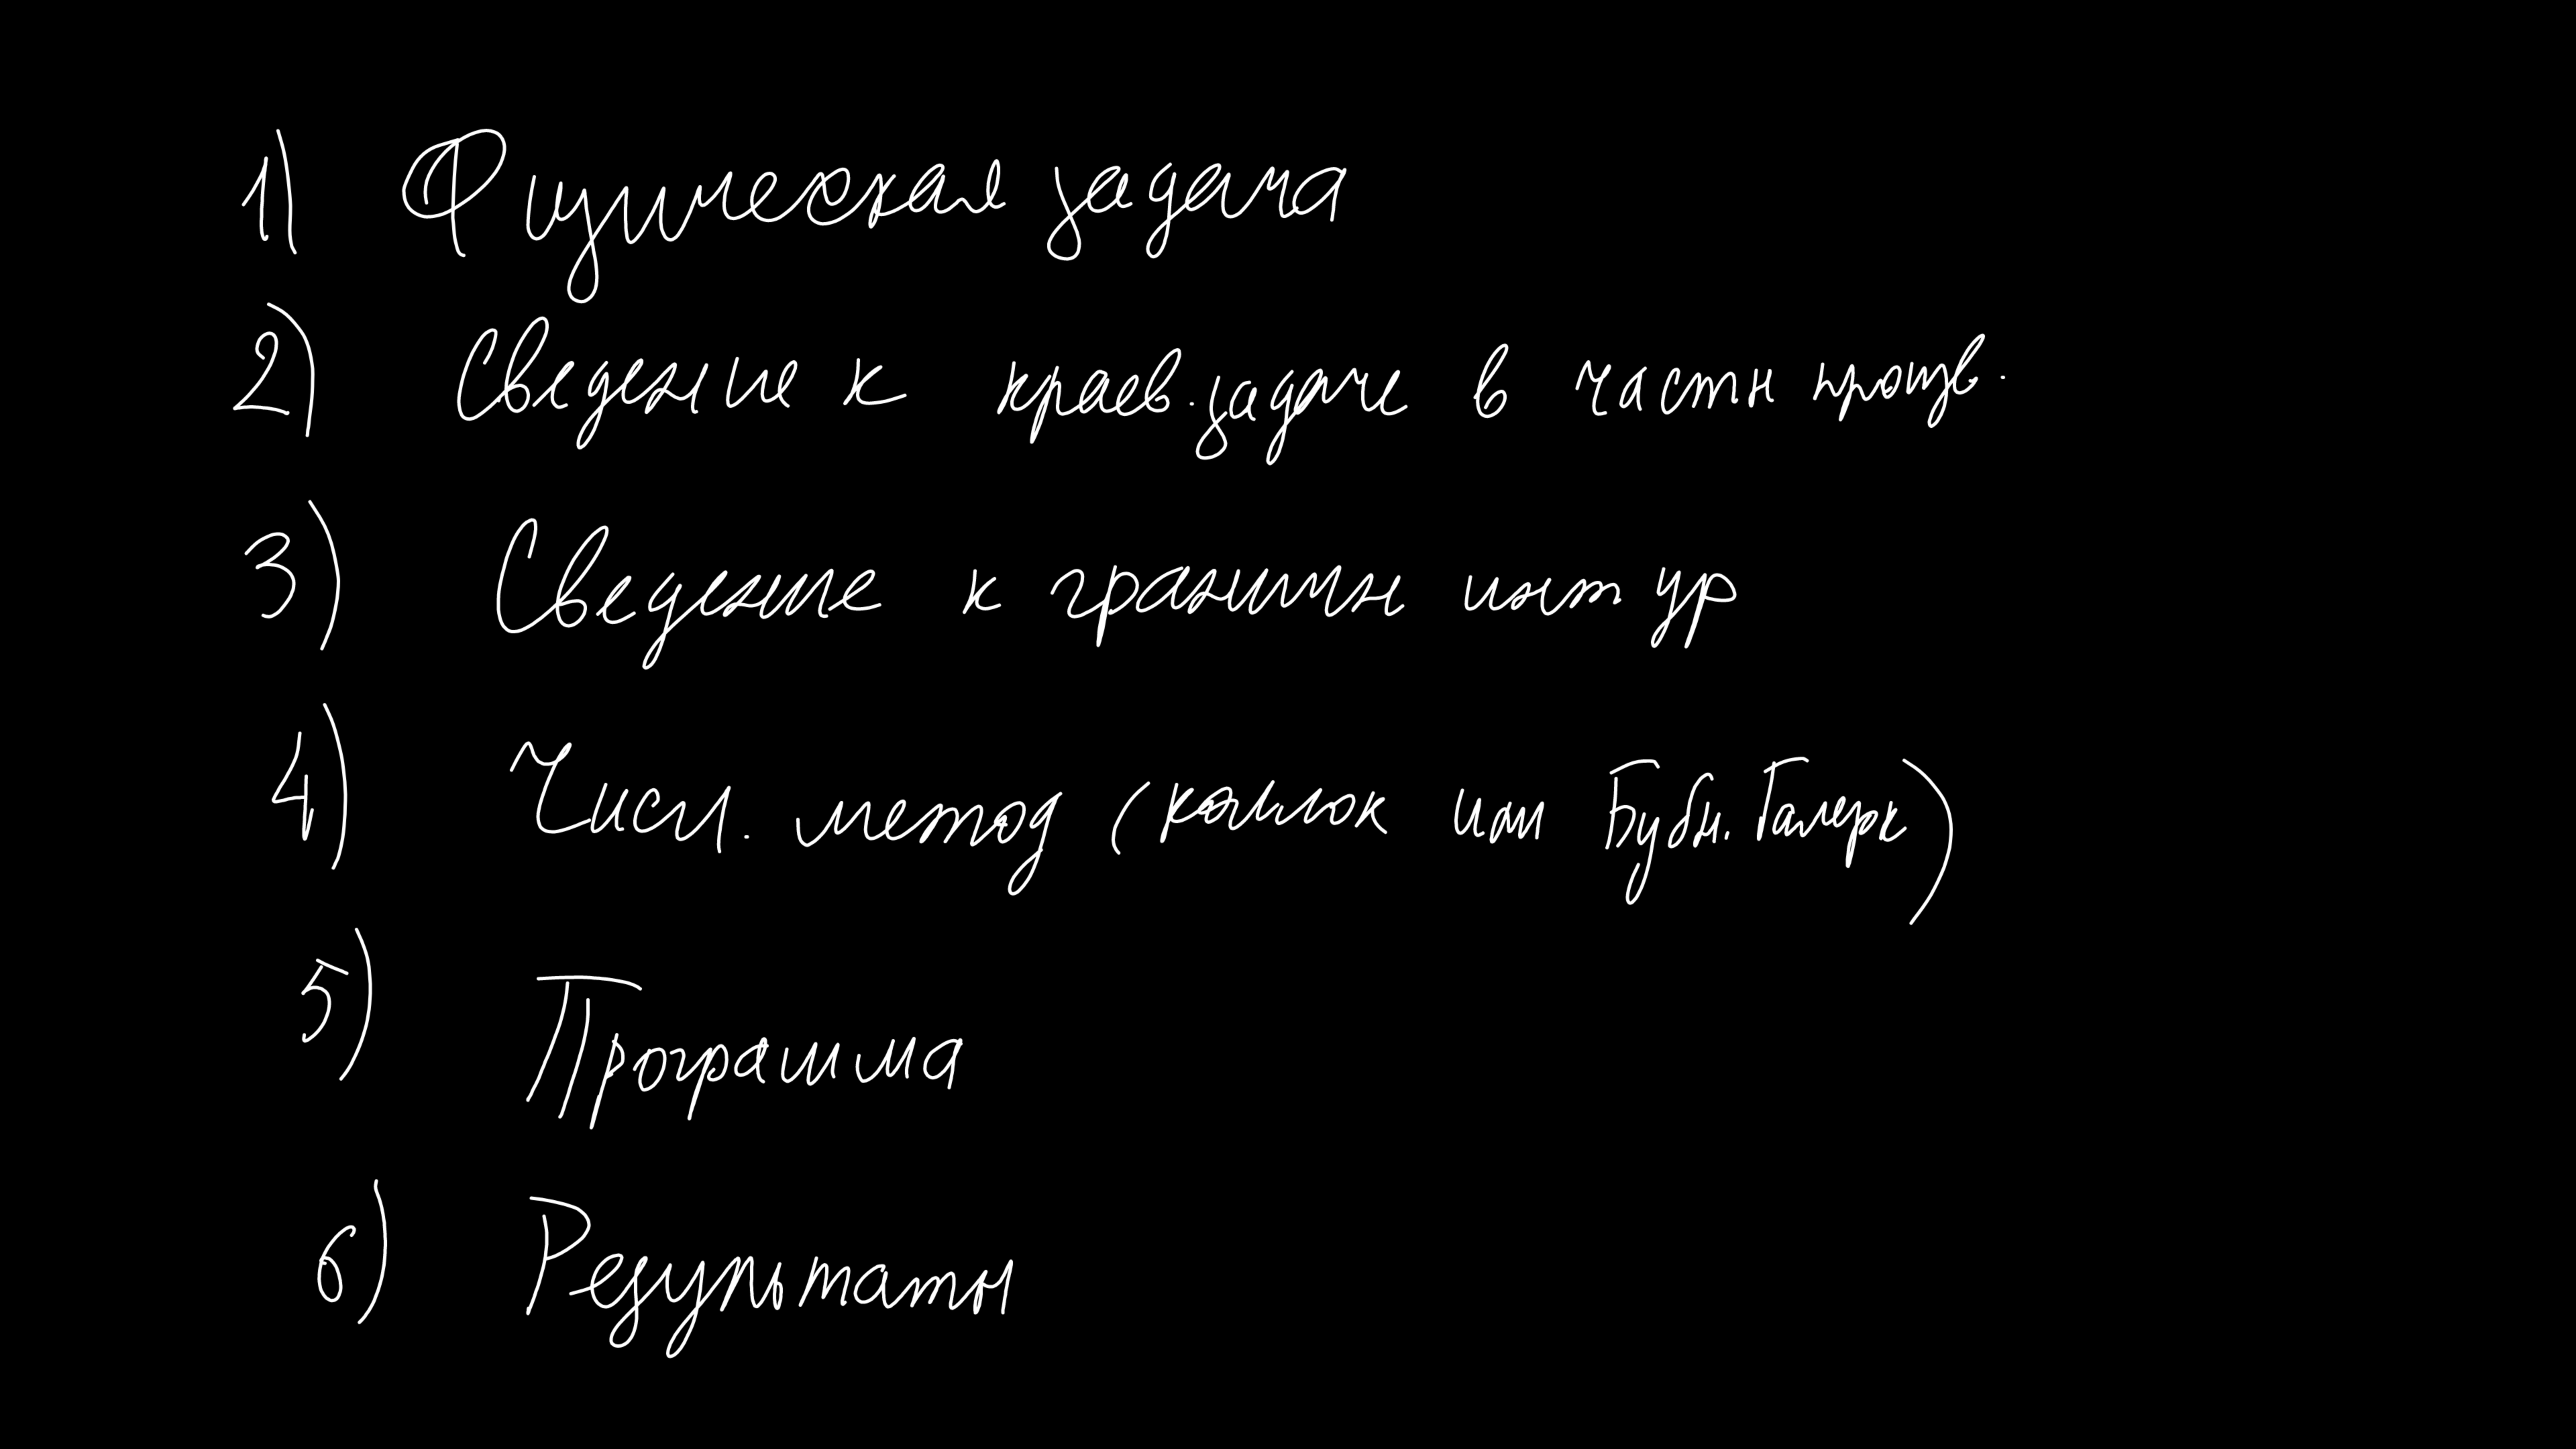 1) Физическая задача
2) Сведение к краев. задаче в частн произв.
3) Сведение к граничн инт ур
4) Числ. метод (коллок или Бубн. Галерк)
5) Программа
6) Результаты